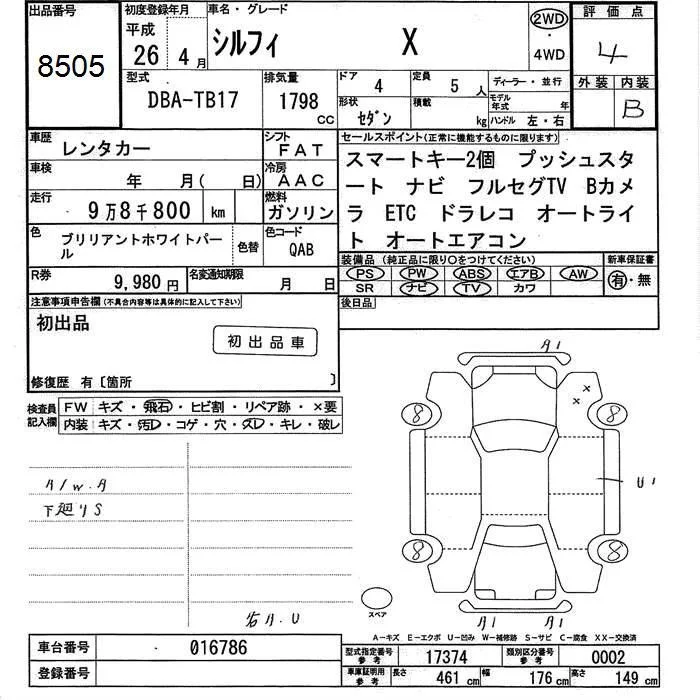 出品番号
8505
初度登録年月
平成
26 4月
車名・グレード
シルフィ X
2WD
・
4WD
評価点
4
外装 内装
B
型式
DBA-TB17
排気量
1798
cc
ドア 4
定員 5 人
ディーラー・並行
形状 セダン
積載 kg
モデル年式 年
ハンドル 左・右
車歴 レンタカー
シフト
FAT
車検
年 月( 日)
冷房
AAC
走行
9万8千800 km
燃料
ガソリン
色
ブリリアントホワイトパー
ル
色替
色コード
QAB
R券
9,980円
名変通知期限
月 日
セールスポイント(正常に機能するものに限ります)
スマートキー2個 プッシュスタ
ート ナビ フルセグTV Bカメ
ラ ETC ドラレコ オートライ
ト オートエアコン
装備品(純正品に限り○をつけてください)
新車保証書
PS PW ABS エアB AW
SR ナビ TV カワ
有・無
後日品
注意事項申告欄(不具合内容等は具体的に記入して下さい)
初出品
初出品車
修復歴 有〔箇所 〕
検査員
記入欄
FW キズ・飛石・ヒビ割・リペア跡・×要
内装 キズ・汚レ・コゲ・穴・スレ・キレ・破レ
A/W.A
下廻りS
A1
8
8
8
8
× ×
U1
A1 A1
スペア
A-キズ E-エクボ U-凹み W-補修跡 S-サビ C-腐食 XX-交換済
車台番号 016786
登録番号
型式指定番号
参考
17374
類別区分番号
参考
0002
車庫証明用
参考
長さ 461 cm
幅 176 cm
高さ 149 cm